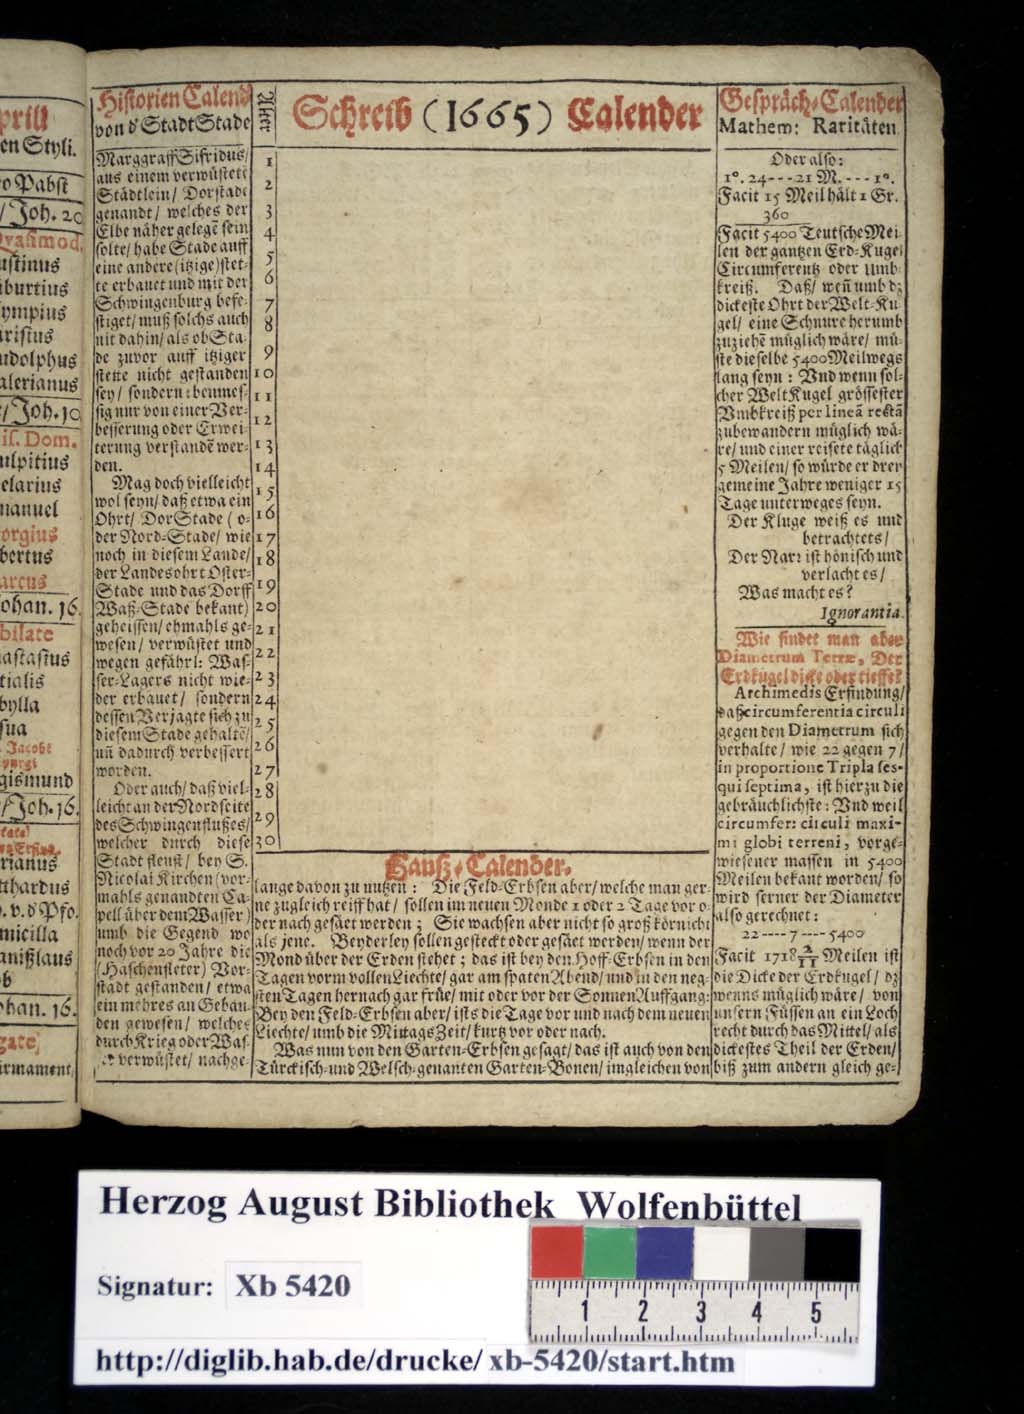 prill
en Styli.
o Pabst
/Joh. 20
Qvasimod.
ustinus
iburtius
ympius
aristus
udolphus
alerianus
/Joh. 10
is. Dom.
ulpitius
elarius
manuel
orgius
bertus
arcus
Johan. 16.
bilate
astasius
tialis
bylla
sua
. Jacobi
gismund
/Joh. 16.
rianus
tthardus
. v. d' Pfo.
micilla
anißlaus
ob
ohan. 16.
gate
irmament
Historien Calend
von d' Stadt Stade
Marggraff Sifridus/
aus einem verwüstetē
Städtlein/ Dorstade
genandt/ welches der
Elbe näher gelegē sein
solte/ habe Stade auff
eine andere (itzige) stet-
te erbauet und mit der
Schwingenburg befe-
stiget/ muß solchs auch
nit dahin/ als ob Sta-
de zuvor auff itziger
stette nicht gestanden
sey/ sondern : beymes-
sig nur von einer Ver-
besserung oder Erwei-
terung verstandē wer-
den.
Mag doch vielleicht
wol seyn/ daß etwa ein
Ohrt/ DorStade (o-
der Nord-Stade/ wie
noch in diesem Lande/
der Landesohrt Oster-
Stade und das Dorff
Waß-Stade bekant)
geheissen/ ehmahls ge-
wesen/ verwüstet und
wegen gefährl: Was-
ser-Lagers nicht wie-
der erbauet/ sondern
dessen Verjagte sich zu
diesem Stade gehaltē/
uñ dadurch verbessert
worden.
Oder auch/ daß viel-
leicht an der Nordseite
des Schwingenflußes/
welcher durch diese
Stadt fleust/ bey S.
Nicolai Kirchen (vor-
mahls genandten Ca-
pell über dem Wasser)
umb die Gegend wo
noch vor 20 Jahre die
(Haschenfleter) Vor-
stadt gestanden/ etwa
ein mehres an Gebäu-
den gewesen/ welches
durch Krieg oder Was-
verwüstet/ nachge-
Alter
1
2
3
4
5
6
7
8
9
10
11
12
13
14
15
16
17
18
19
20
21
22
23
24
25
26
27
28
29
30
Schreib (1665) Calender
Hauß-Calender.
lange davon zu nutzen : Die Feld-Erbsen aber/ welche man ger-
ne zugleich reiff hat/ sollen im neuen Monde 1 oder 2 Tage vor o-
der nach gesäet werden ; Sie wachsen aber nicht so groß körnicht
als jene. Beyderley sollen gesteckt oder gesäet werden/ wenn der
Mond über der Erden stehet ; das ist bey den Hoff-Erbsen in den
Tagen vorm vollen Liechte/ gar am spaten Abend/ und in den neg-
sten Tagen hernach gar früe/ mit oder vor der Sonnen Auffgang:
Bey den Feld-Erbsen aber/ ists die Tage vor und nach dem neuen
Liechte/ umb die Mittags Zeit/ kurtz vor oder nach.
Was nun von den Garten-Erbsen gesagt/ das ist auch von den
Türckisch-und Welsch-genanten Garten-Bonen/ imgleichen von
Gespräch-Calender
Mathem: Raritäten.
Oder also:
1°. 24---21 M.---1°.
Facit 15 Meil hält 1 Gr.
360
Facit 5400 Teutsche Mei-
len der gantzen Erd-Kugel
Circumferentz oder Umb-
kreiß. Daß/ weñ umb dz
dickeste Ohrt der Welt-Ku-
gel/ eine Schnure herumb
zuziehē müglich wäre/ mü-
ste dieselbe 5400 Meilwegs
lang seyn : Vnd wenn sol-
cher Welt Kugel grössester
Vmbkreiß per lineā rectā
zubewandern müglich wä-
re/ und einer reisete täglich
5 Meilen/ so würde er drey
gemeine Jahre weniger 15
Tage unterweges seyn.
Der Kluge weiß es und
betrachtets/
Der Narr ist hönisch und
verlacht es/
Was macht es?
Ignorantia.
Wie findet man aber
Diametrum Terræ, Der
Erdkugel dicke oder tieffe?
Archimedis Erfindung/
daß circumferentia circuli
gegen den Diametrum sich
verhalte/ wie 22 gegen 7/
in proportione Tripla ses-
qui septima, ist hierzu die
gebräuchlichste : Vnd weil
circumfer: circuli maxi-
mi globi terreni, vorge-
wiesener massen in 5400
Meilen bekant worden/ so
wird ferner der Diameter
also gerechnet:
22----7----5400
Facit 1718 2/11 Meilen ist
die Dicke der Erdkugel/ dz
wenns müglich wäre/ von
unsern Füssen an ein Loch
recht durch das Mittel/ als
dickestes Theil der Erden/
biß zum andern gleich ge-
Herzog August Bibliothek Wolfenbüttel
Signatur: Xb 5420
1 2 3 4 5
http://diglib.hab.de/drucke/ xb-5420/start.htm